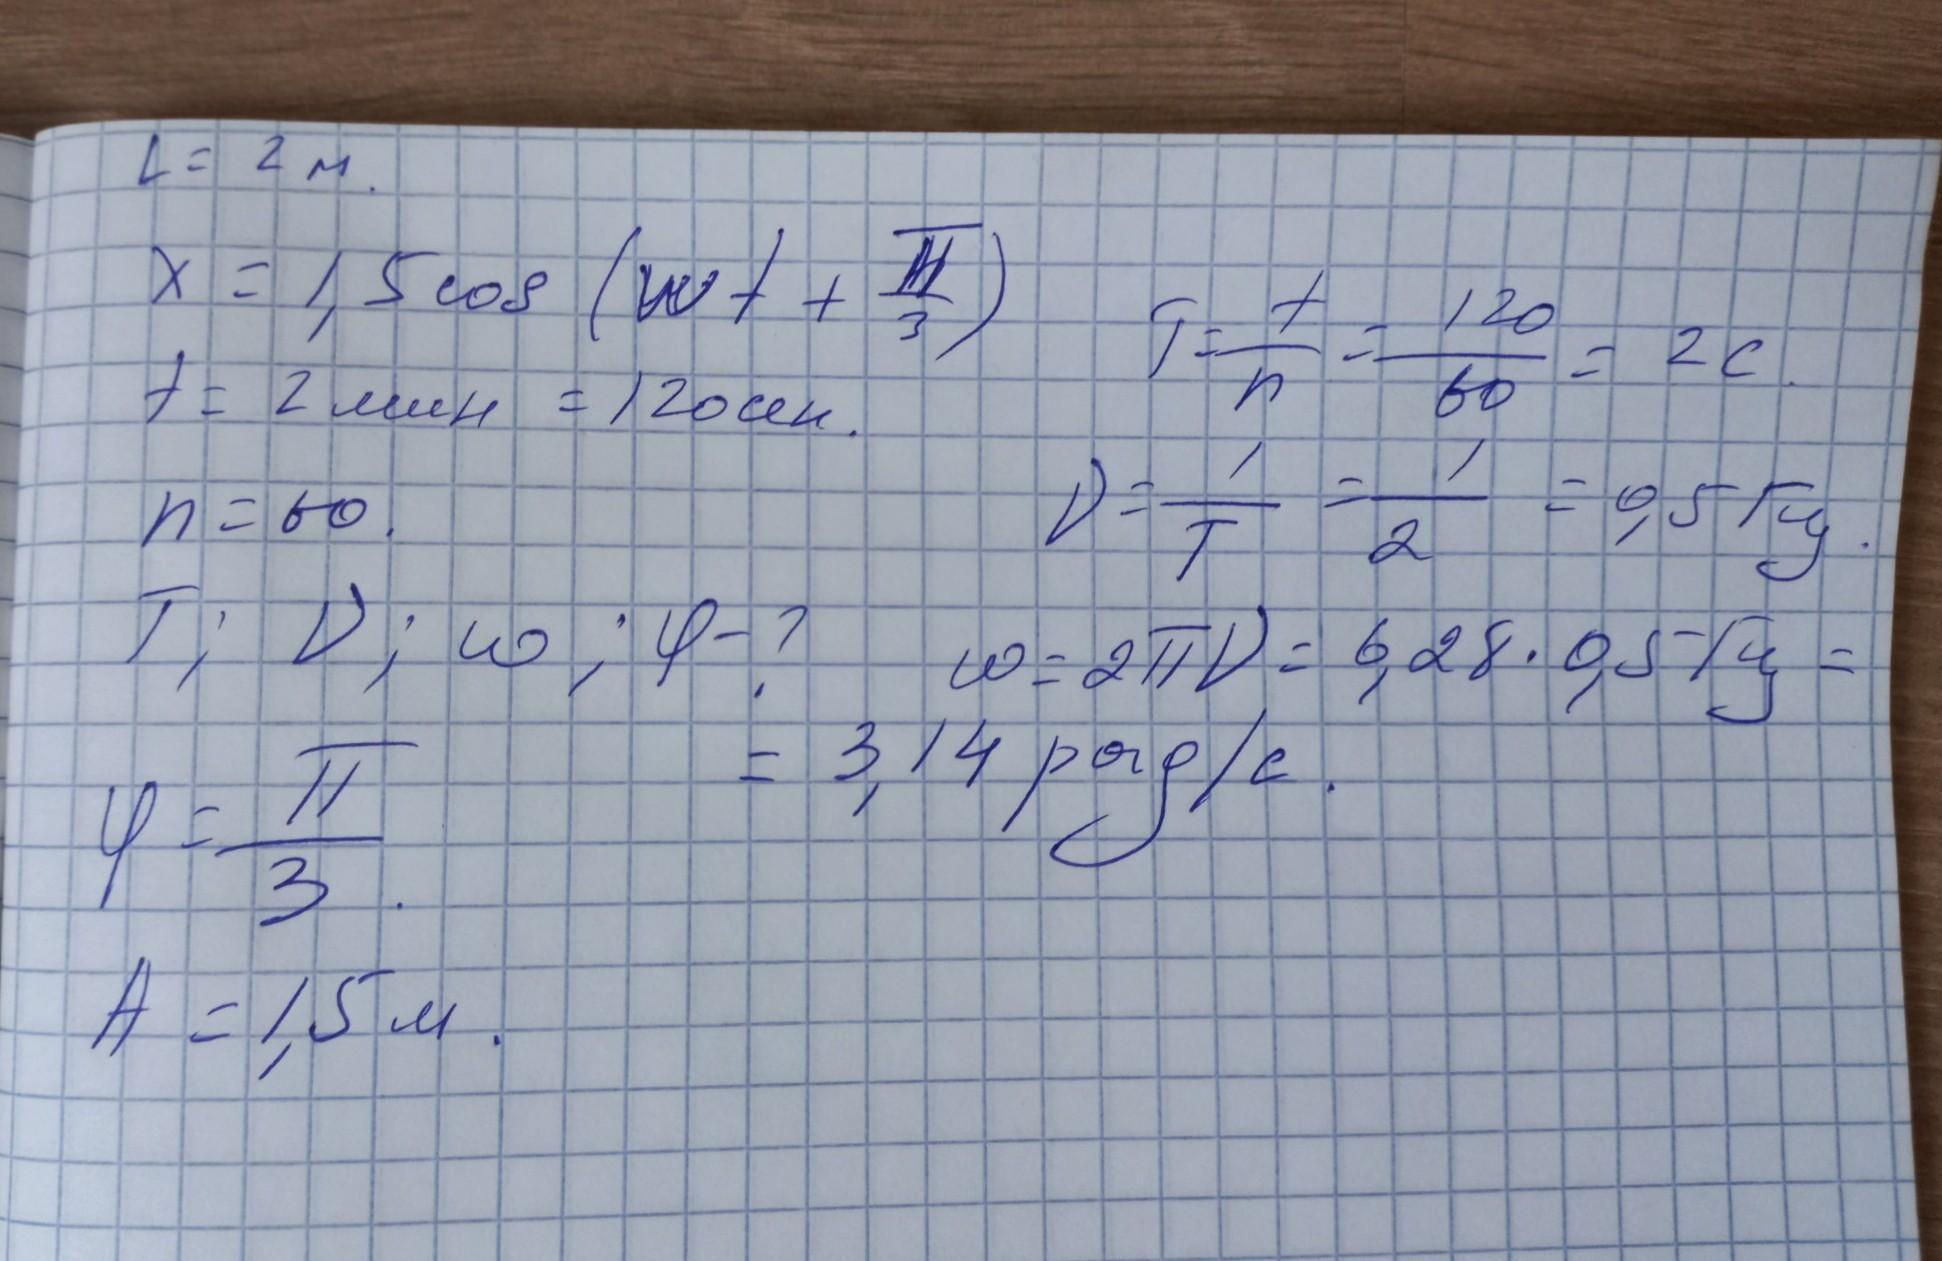 L = 2 м.
x = 1,5 cos (ωt + π/3)
t = 2 мин = 120 сек.
n = 60.
T; ν; ω; φ - ?
φ = π/3.
A = 1,5 м.
T = t/n = 120/60 = 2 с.
ν = 1/T = 1/2 = 0,5 Гц.
ω = 2πν = 6,28 · 0,5 Гц =
= 3,14 рад/с.